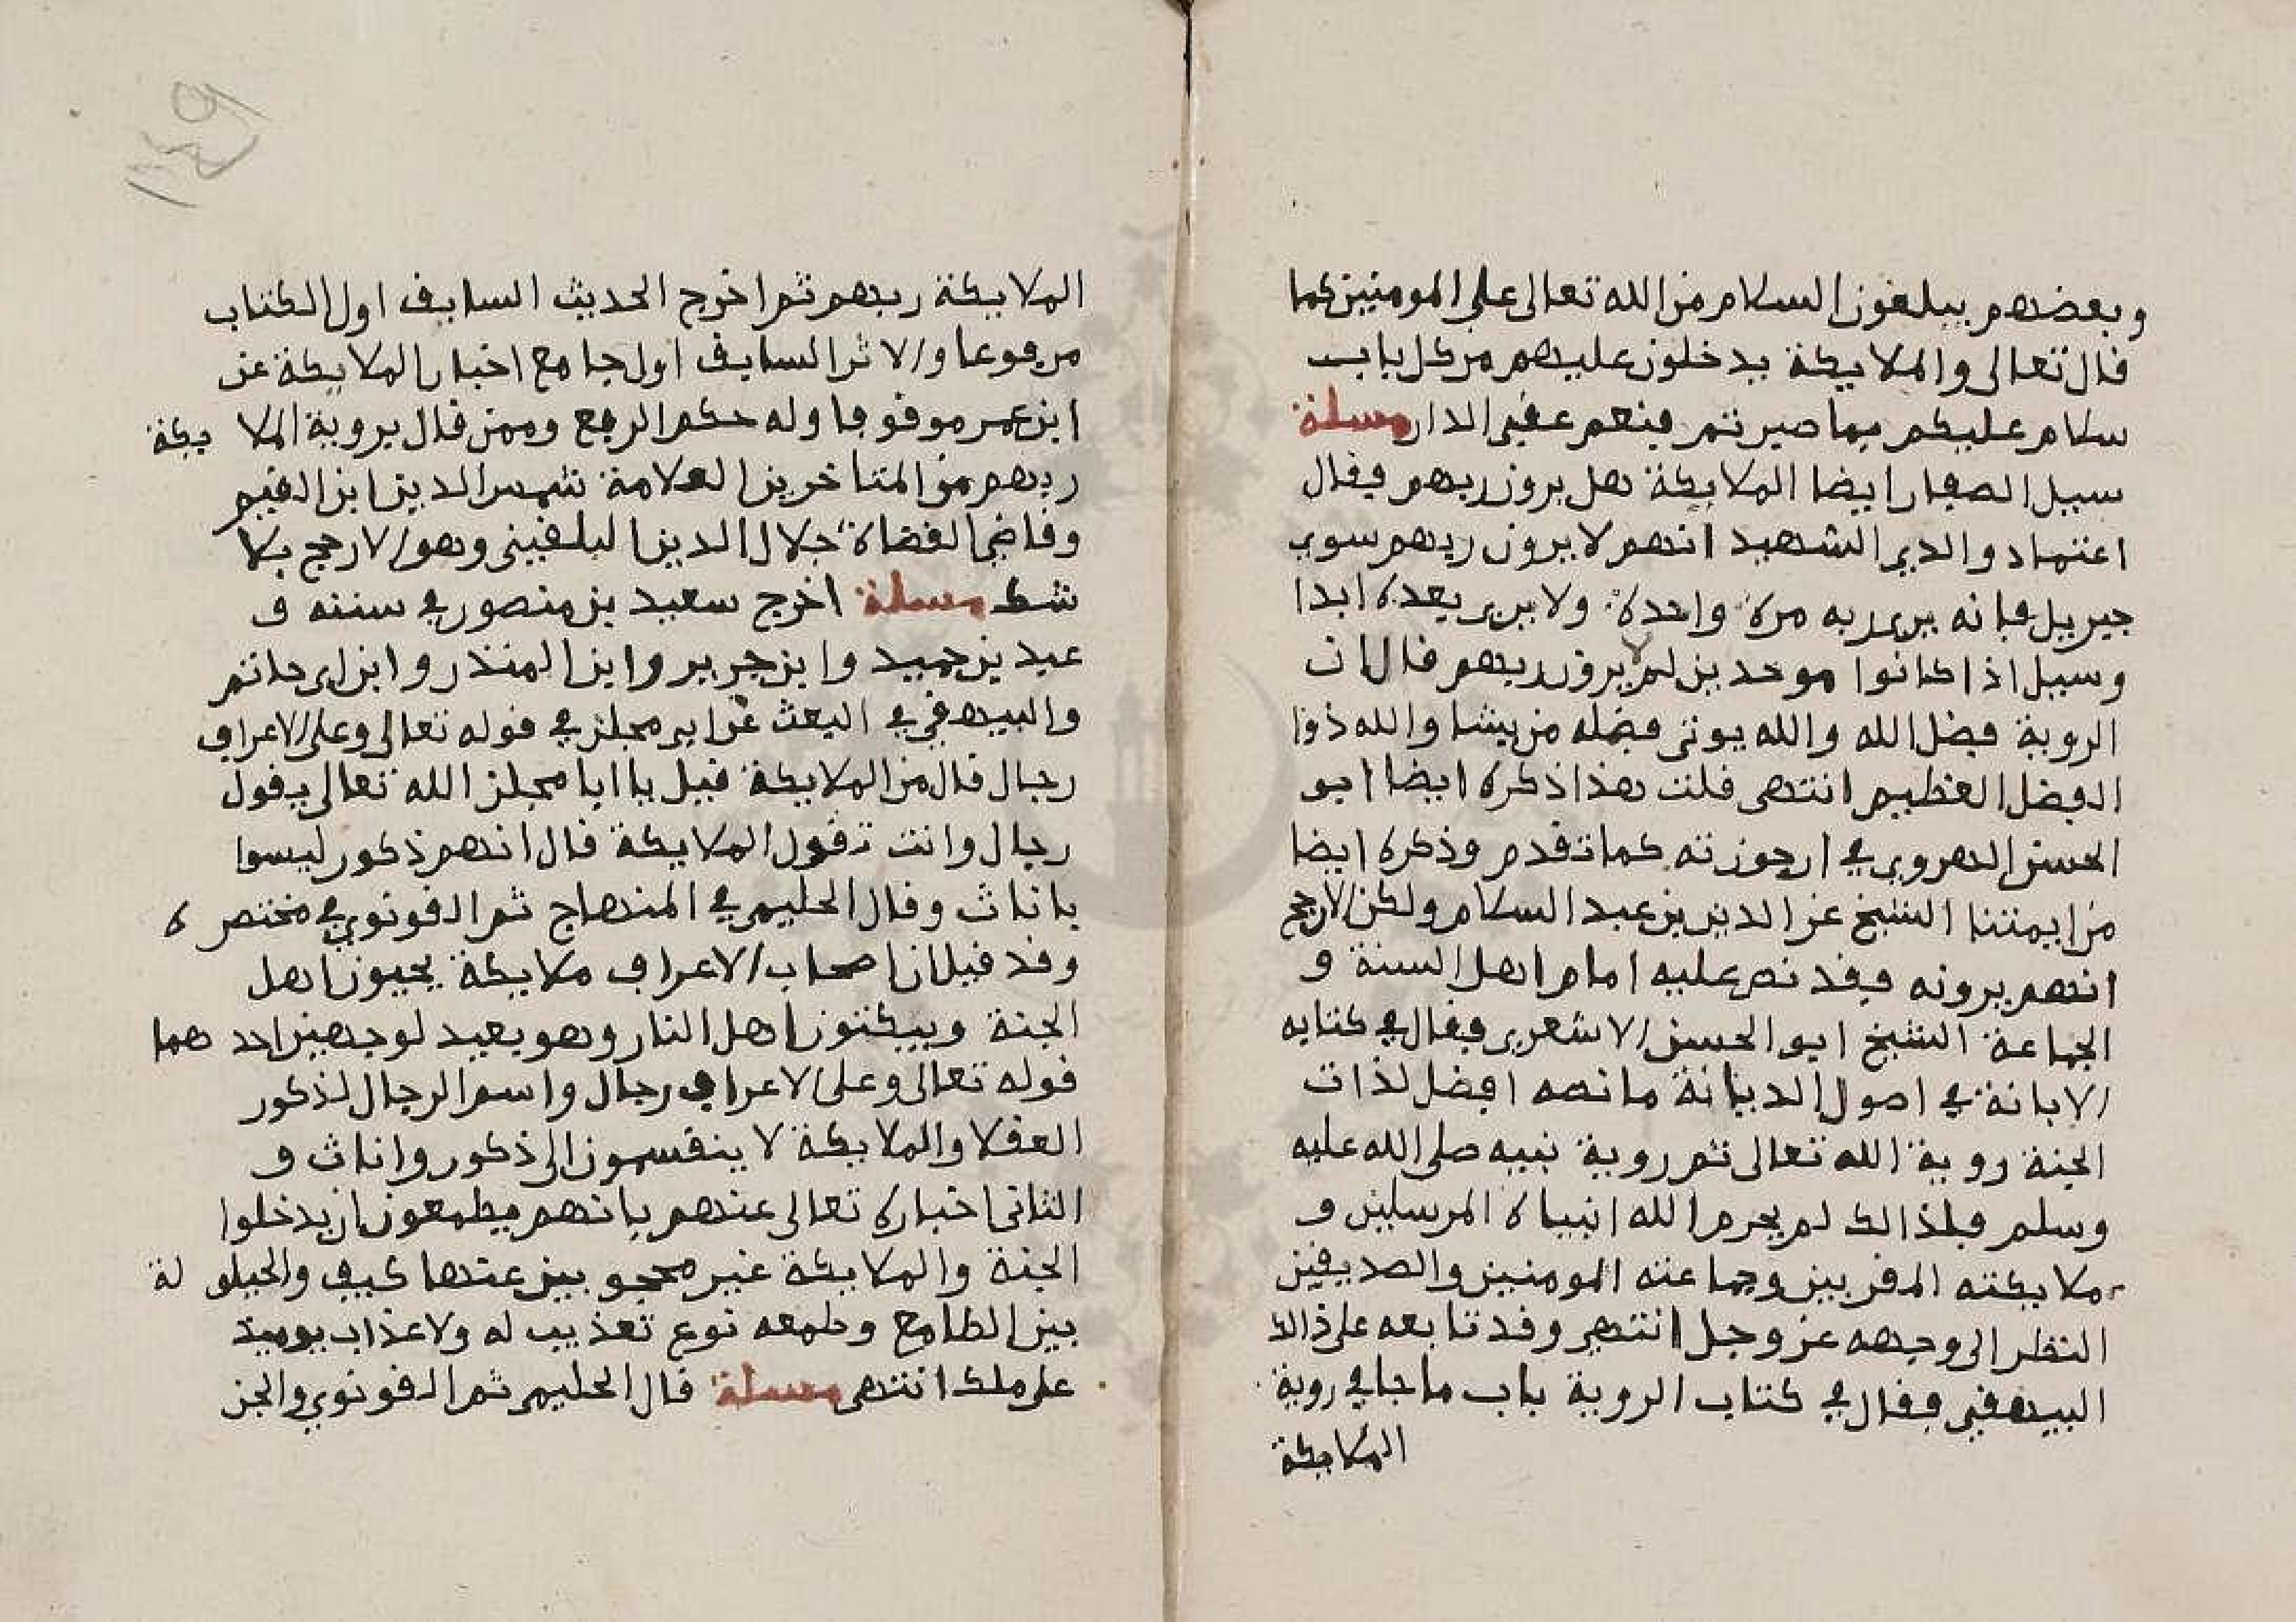 وبعضهم يبلغون السلام من الله تعالى على المومنين كما
قال تعالى والملايكة يدخلون عليهم من كل باب
سلام عليكم بما صبرتم فنعم عقبى الدار مسلة
سيل الصفار ايضا الملايكة هل يرون ربهم فقال
اعتماد والدي الشهيد انهم لا يرون ربهم سوى
جبريل فانه يرى ربه مرة واحدة ولا يرى بعده ابدا
وسيل اذا كانوا موحدين لم لا يرون ربهم قال ان
الروية فضل الله والله يوتى فضله من يشا والله ذوا
الفضل العظيم انتهى قلت هذا ذكره ايضا ابو
الحسن الهروي في ارجوزته كما تقدم وذكره ايضا
من ايمتنا الشيخ عز الدين بن عبد السلام ولكن الارجح
انهم يرونه فقد نص عليه امام اهل السنة و
الجماعة الشيخ ابو الحسن الاشعري فقال في كتابه
الابانة في اصول الديانة ما نصه افضل لذات
الجنة روية الله تعالى ثم روية نبيه صلى الله عليه
وسلم فلذالك لم يحرم الله انبياه المرسلين و
ملايكته المقربين وجماعته المومنين والصديقين
النظر الى وجهه عز وجل انتهى وقد تابعه على ذالك
البيهقي فقال في كتاب الروية باب ما جا في روية
الملايكة
الملايكة ربهم ثم اخرج الحديث السابق اول الكتاب
مرفوعا والاثر السابق اول جامع اخبار الملايكة عن
ابن عمر موقوفا وله حكم الرفع وممن قال بروية الملا يكة
ربهم من المتاخرين العلامة شمس الدين ابن القيم
وقاضي القضاة جلال الدين البلقيني وهو الارجح بلا
شك مسلة اخرج سعيد بن منصور في سننه و
عبد بن حميد وابن جرير وابن المنذر وابن ابي حاتم
والبيهقي في البعث عن ابي مجلز في قوله تعالى وعلى الاعراف
رجال قال من الملايكة قيل يا ابا مجلز الله تعالى يقول
رجال وانت تقول الملايكة قال انهم ذكور ليسوا
باناث وقال الحليمي في المنهاج ثم القونوي في مختصر ه
وقد قيل ان اصحاب الاعراف ملايكة يحبون اهل
الجنة ويبكتون اهل النار وهو بعيد لوجهين احد هما
قوله تعالى وعلى الاعراف رجال واسم الرجال لذكور
العقلا والملايكة لا ينقسمون الى ذكور واناث و
الثاني اخباره تعالى عنهم بانهم يطمعون ان يدخلوا
الجنة والملايكة غير محجو بين عنها كيف والحيلو لة
بين الطامع وطمعه نوع تعذيب له ولا عذاب يوميذ
على ملك انتهى مسلة قال الحليمي ثم القونوي والجن